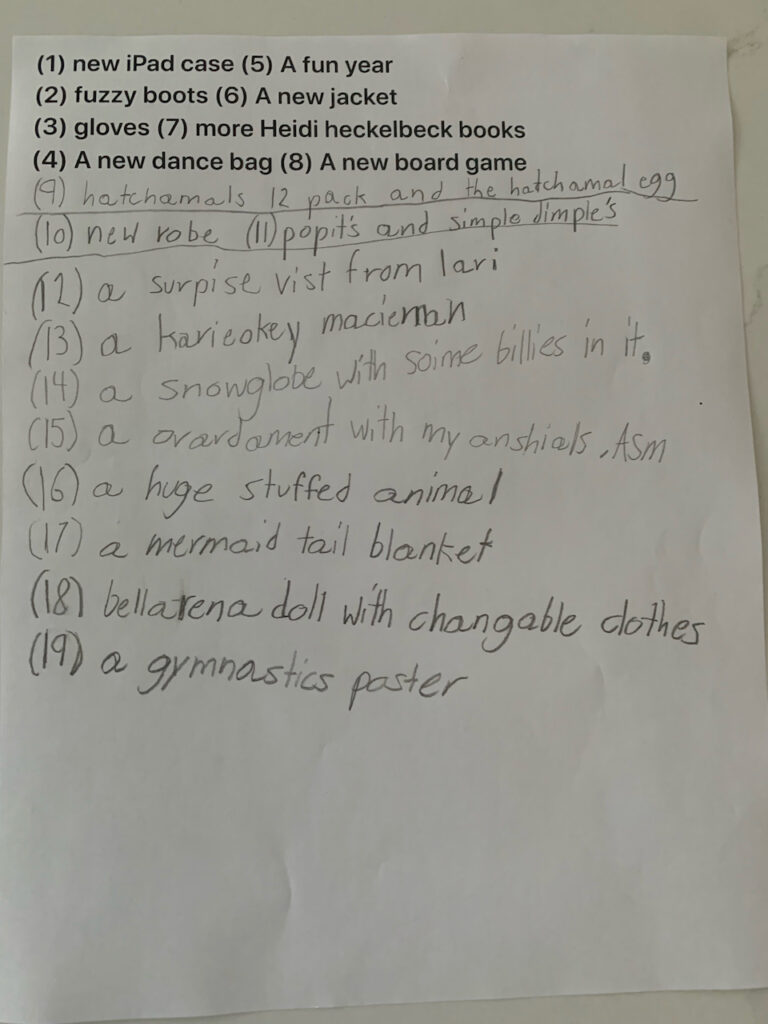 (1) new iPad case (5) A fun year
(2) fuzzy boots (6) A new jacket
(3) gloves (7) more Heidi heckelbeck books
(4) A new dance bag (8) A new board game
(9) hatchamals 12 pack and the hatchamal egg
(10) new robe (11) popit's and simple dimple's
(12) a surpise vist from lari
(13) a karieokey macieman
(14) a snowglobe with soime billies in it.
(15) a ovardament with my anshials, ASM
(16) a huge stuffed animal
(17) a mermaid tail blanket
(18) bellarena doll with changable clothes
(19) a gymnastics poster